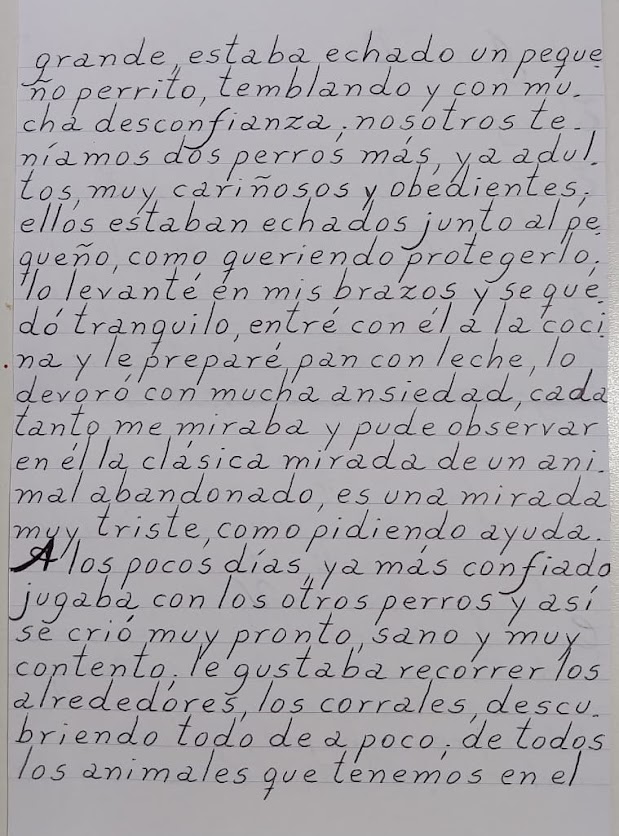 grande, estaba echado un peque
ño perrito, temblando y con mu-
cha desconfianza; nosotros te-
níamos dos perros más, ya adul-
tos, muy cariñosos y obedientes;
ellos estaban echados junto al pe
queño, como queriendo protegerlo;
lo levanté en mis brazos y se que-
dó tranquilo, entré con él a la coci
na y le preparé pan con leche, lo
devoró con mucha ansiedad, cada
tanto me miraba y pude observar
en él la clásica mirada de un ani-
mal abandonado, es una mirada
muy triste, como pidiendo ayuda.
A los pocos días, ya más confiado
jugaba con los otros perros y así
se crió muy pronto, sano y muy
contento; le gustaba recorrer los
alrededores, los corrales, descu-
briendo todo de a poco; de todos
los animales que tenemos en el